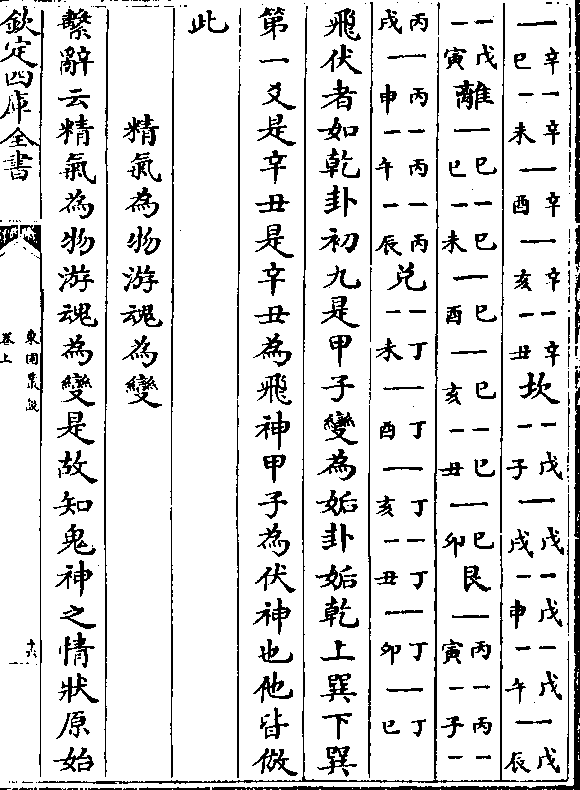 辛巳辛未辛酉辛亥辛丑坎戊子戊戌戊申戊午戊辰
戊寅離巳巳巳未巳酉巳亥巳丑巳卯艮丙寅丙子
丙戌丙申丙午丙辰兌丁未丁酉丁亥丁丑丁卯丁巳
飛伏者如乾卦初九是甲子變為姤卦姤乾上巽下巽
第一爻是辛丑是辛丑為飛神甲子為伏神也他皆倣
此
精氣為物游魂為變
繫辭云精氣為物游魂為變是故知鬼神之情狀原始
欽定四庫全書
東園叢說
卷上
十六